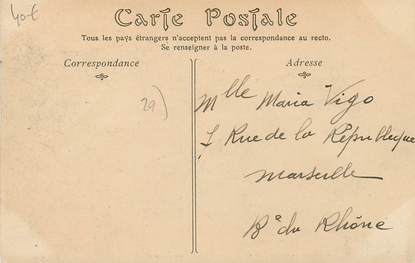 40€
Carte Postale
Tous les pays étrangers n'acceptent pas la correspondance au recto.
Se renseigner à la poste.
Correspondance
Adresse
29)
Mlle Maria Vigo
Rue de la République
Marseille
Bᵉ du Rhône